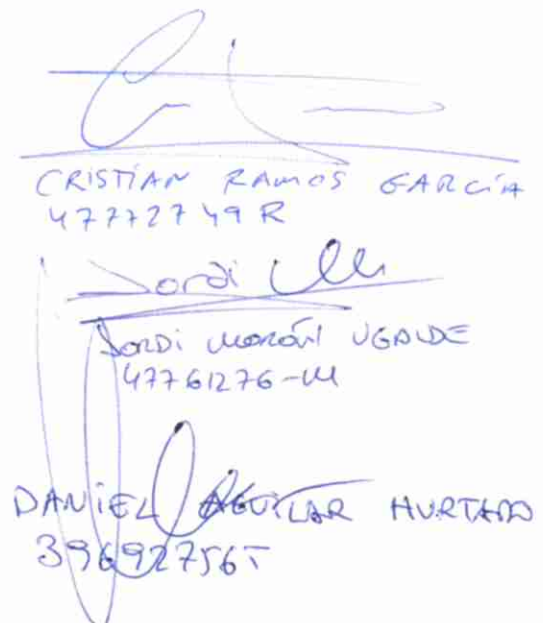 CRISTIAN RAMOS GARCÍA
47772749R
Jordi
JORDI MORÓN UGALDE
47761276-M
DANIEL AGUILAR HURTADO
39692756T